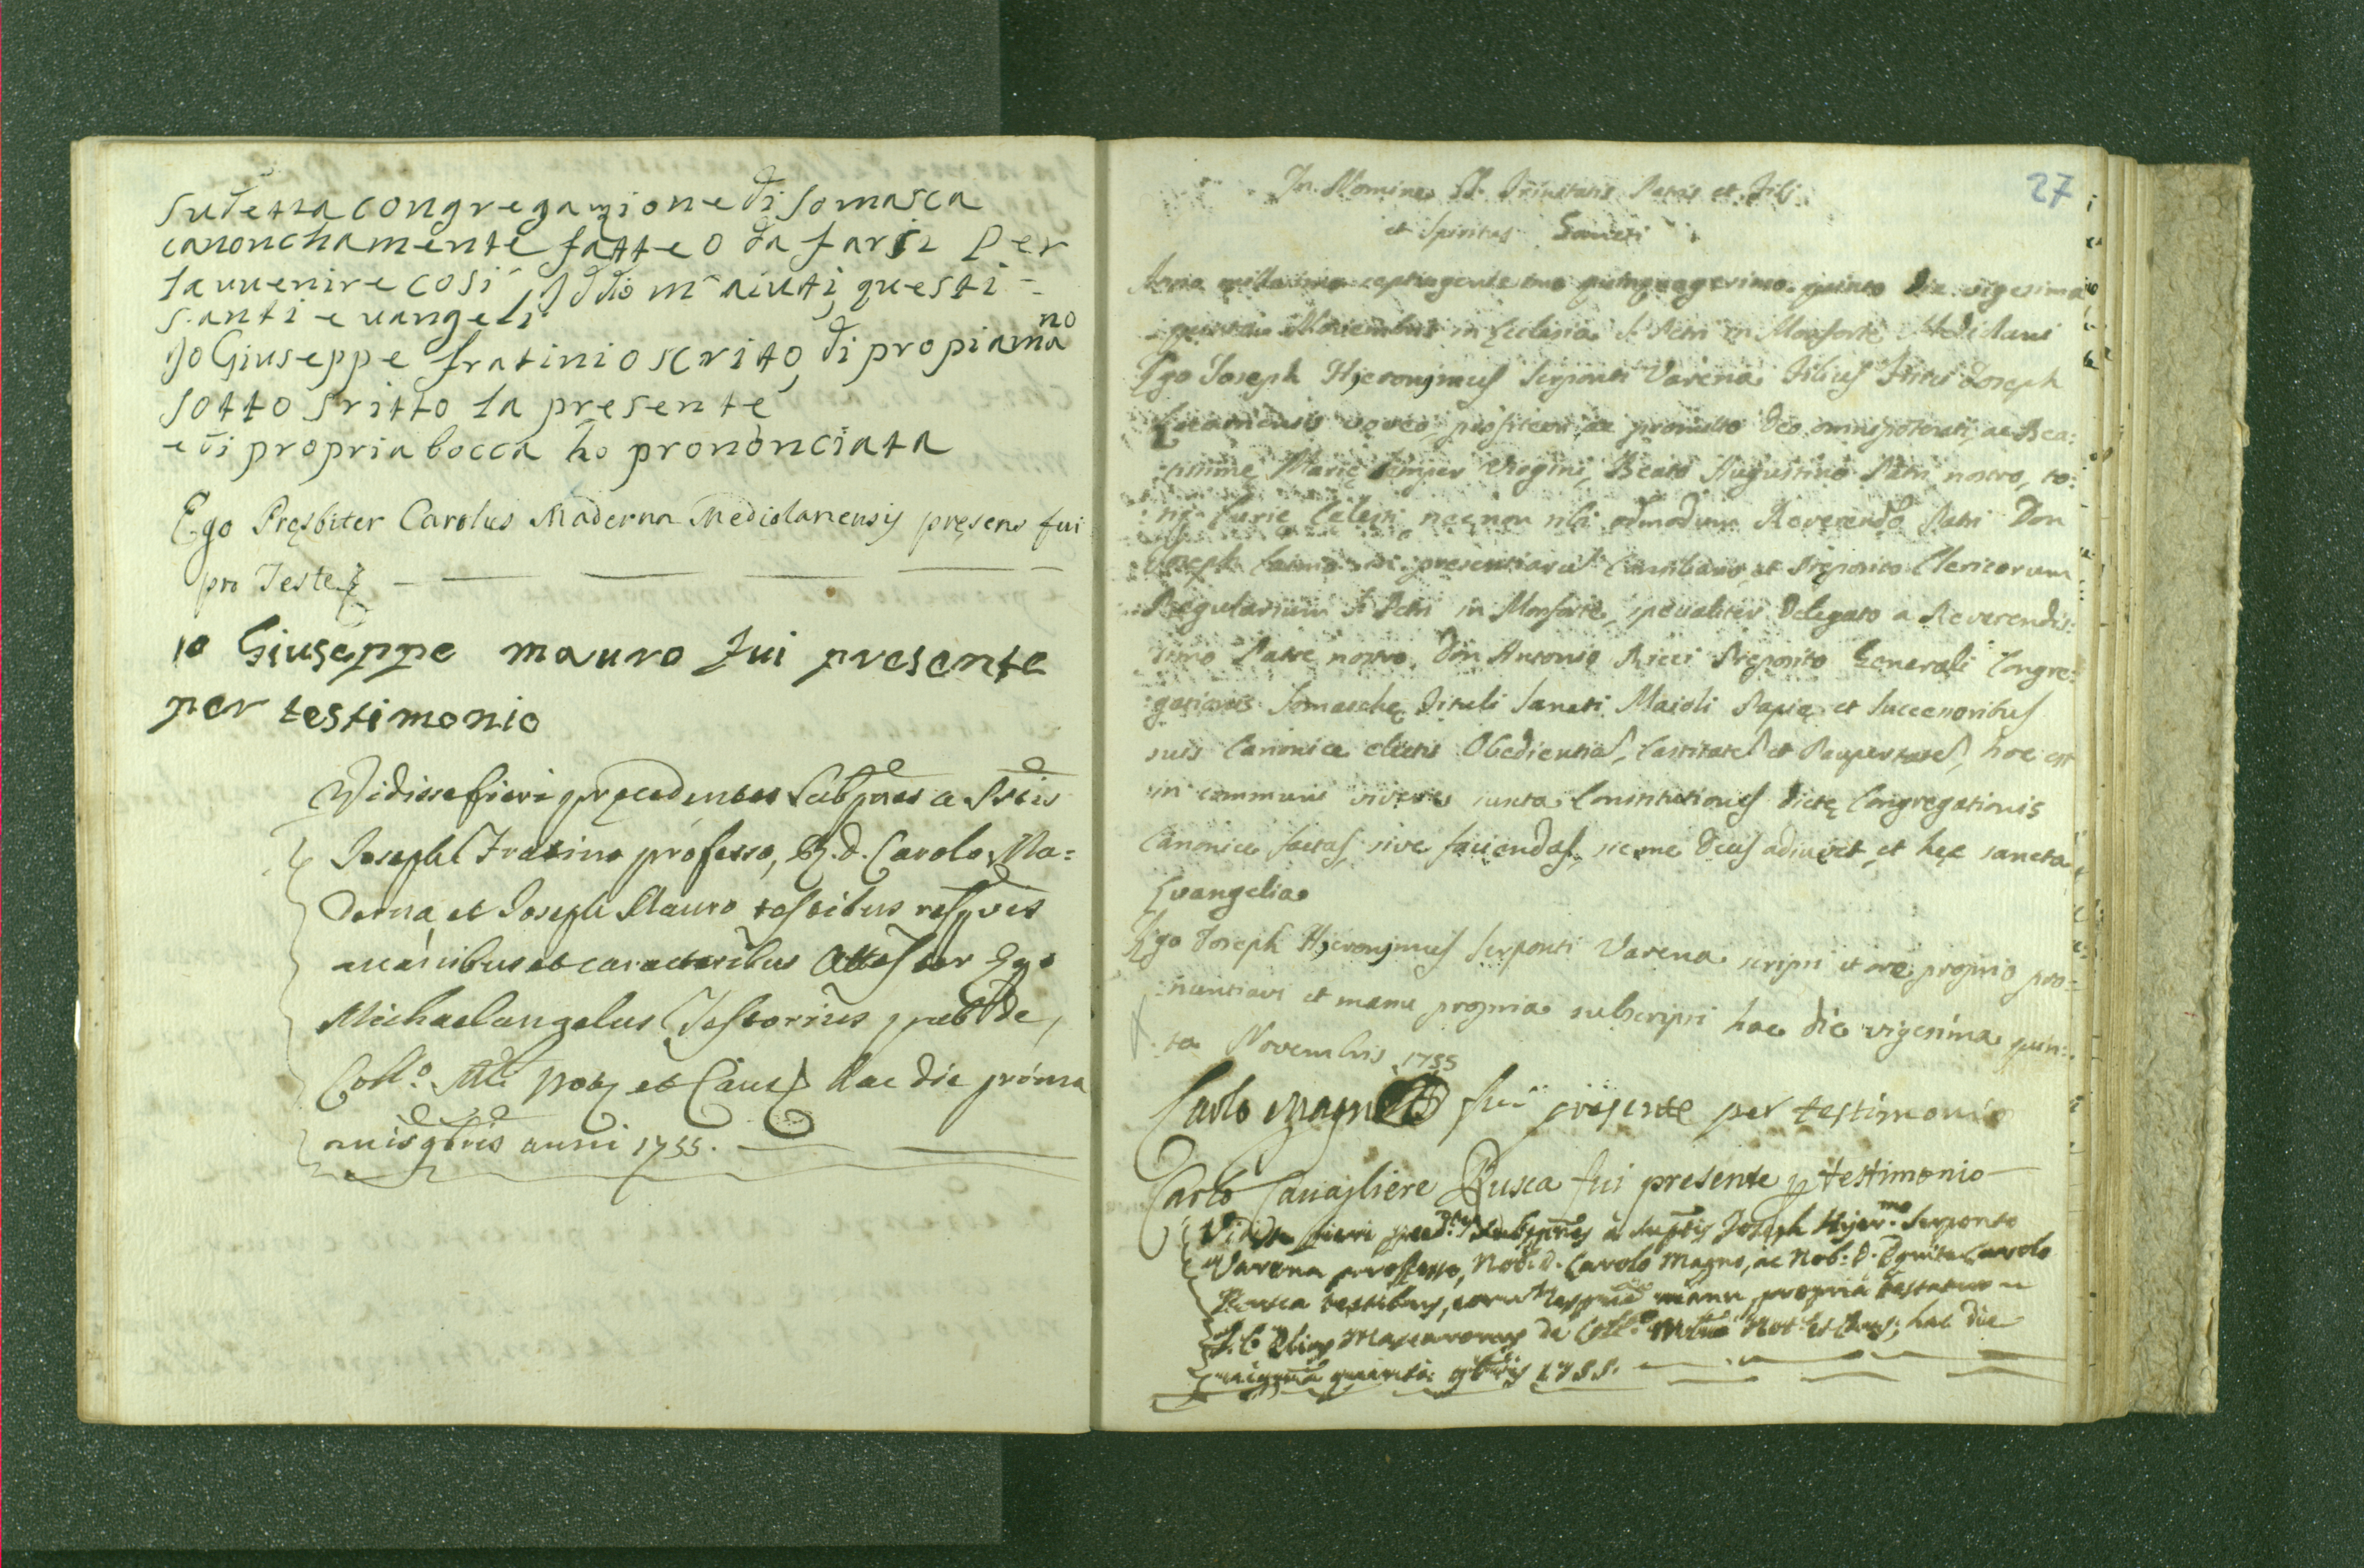 sudetta congregazione di somasca
canonchamente fatte o da farsi per
lavvenire così Iddio m'aiuti questi
santi evangeli
Jo Giuseppe fratini o scrito, di propia mano
sotto sritto la presente
e di propria bocca ho prononciata
Ego Pręsbiter Carolus Maderna Mediolanensis pręsens fui
pro Teste
io Giuseppe mauro fui presente
per testimonio
Vidisse fieri precedentes a
Joseph Fratino professo, R. d. Carolo Ma=
derna, et Joseph Mauro testibus
manibus et caracteribus Attestor Ego
Michaelangelus Testorius de
Coll.o et Caus hac die prima
9bris anni 1755.
27
In Nomine SS. Trinitatis Patris et Filj
et Spiritus Sancti
Anno millesimo septingentesimo quinquagesimo quinto die vigesima
quinta Novembris in Ecclesia S. Petri in Monforte Mediolani
Ego Joseph Hjeronjmus Serponti Varena filius Joseph
voveo, profiteor ac promitto Deo omnipotenti, ac Bea:
tissimę Marię semper Virgini, Beato Augustino Patri nostro, to:
ti Curię Celesti, necnon tibi admodum Reverendo Patri Don
Joseph et Pręposito Clericorum
Regularium S. Petri in Monforte, specialiter Delegato a Reverendis:
simo Patre nostro Don Antonio Ricci Pręposito Generali Congre:
gationis Somaschę Tituli Sancti Maioli Papię et Successoribus
suis Canonice electis Obedientia, Castitate et Paupertate, hoc est
in communi vivere iuxta Constitutiones dictę Congregationis
Canonice factas, sive faciendas, sic me Deus adiuvet, et hęc sancta
Evangelia
Ego Joseph Hjeronjmus Serponti Varena scripsi et ore proprio pro:
nuntiavi et manu propria subscripsi hac die vigesima quin:
ta Novembris 1755
Carlo fui presente per testimonio
Carlo Cavagliere Busca fui presente p testimonio
fieri Joseph Hijer.mo Serponto
Varena professo, Nob. D. Carolo Magno, ac Nob. D. Carolo
Busca testibus, manu propria
de Coll.o Not. et Caus; hac die
9bris 1755.